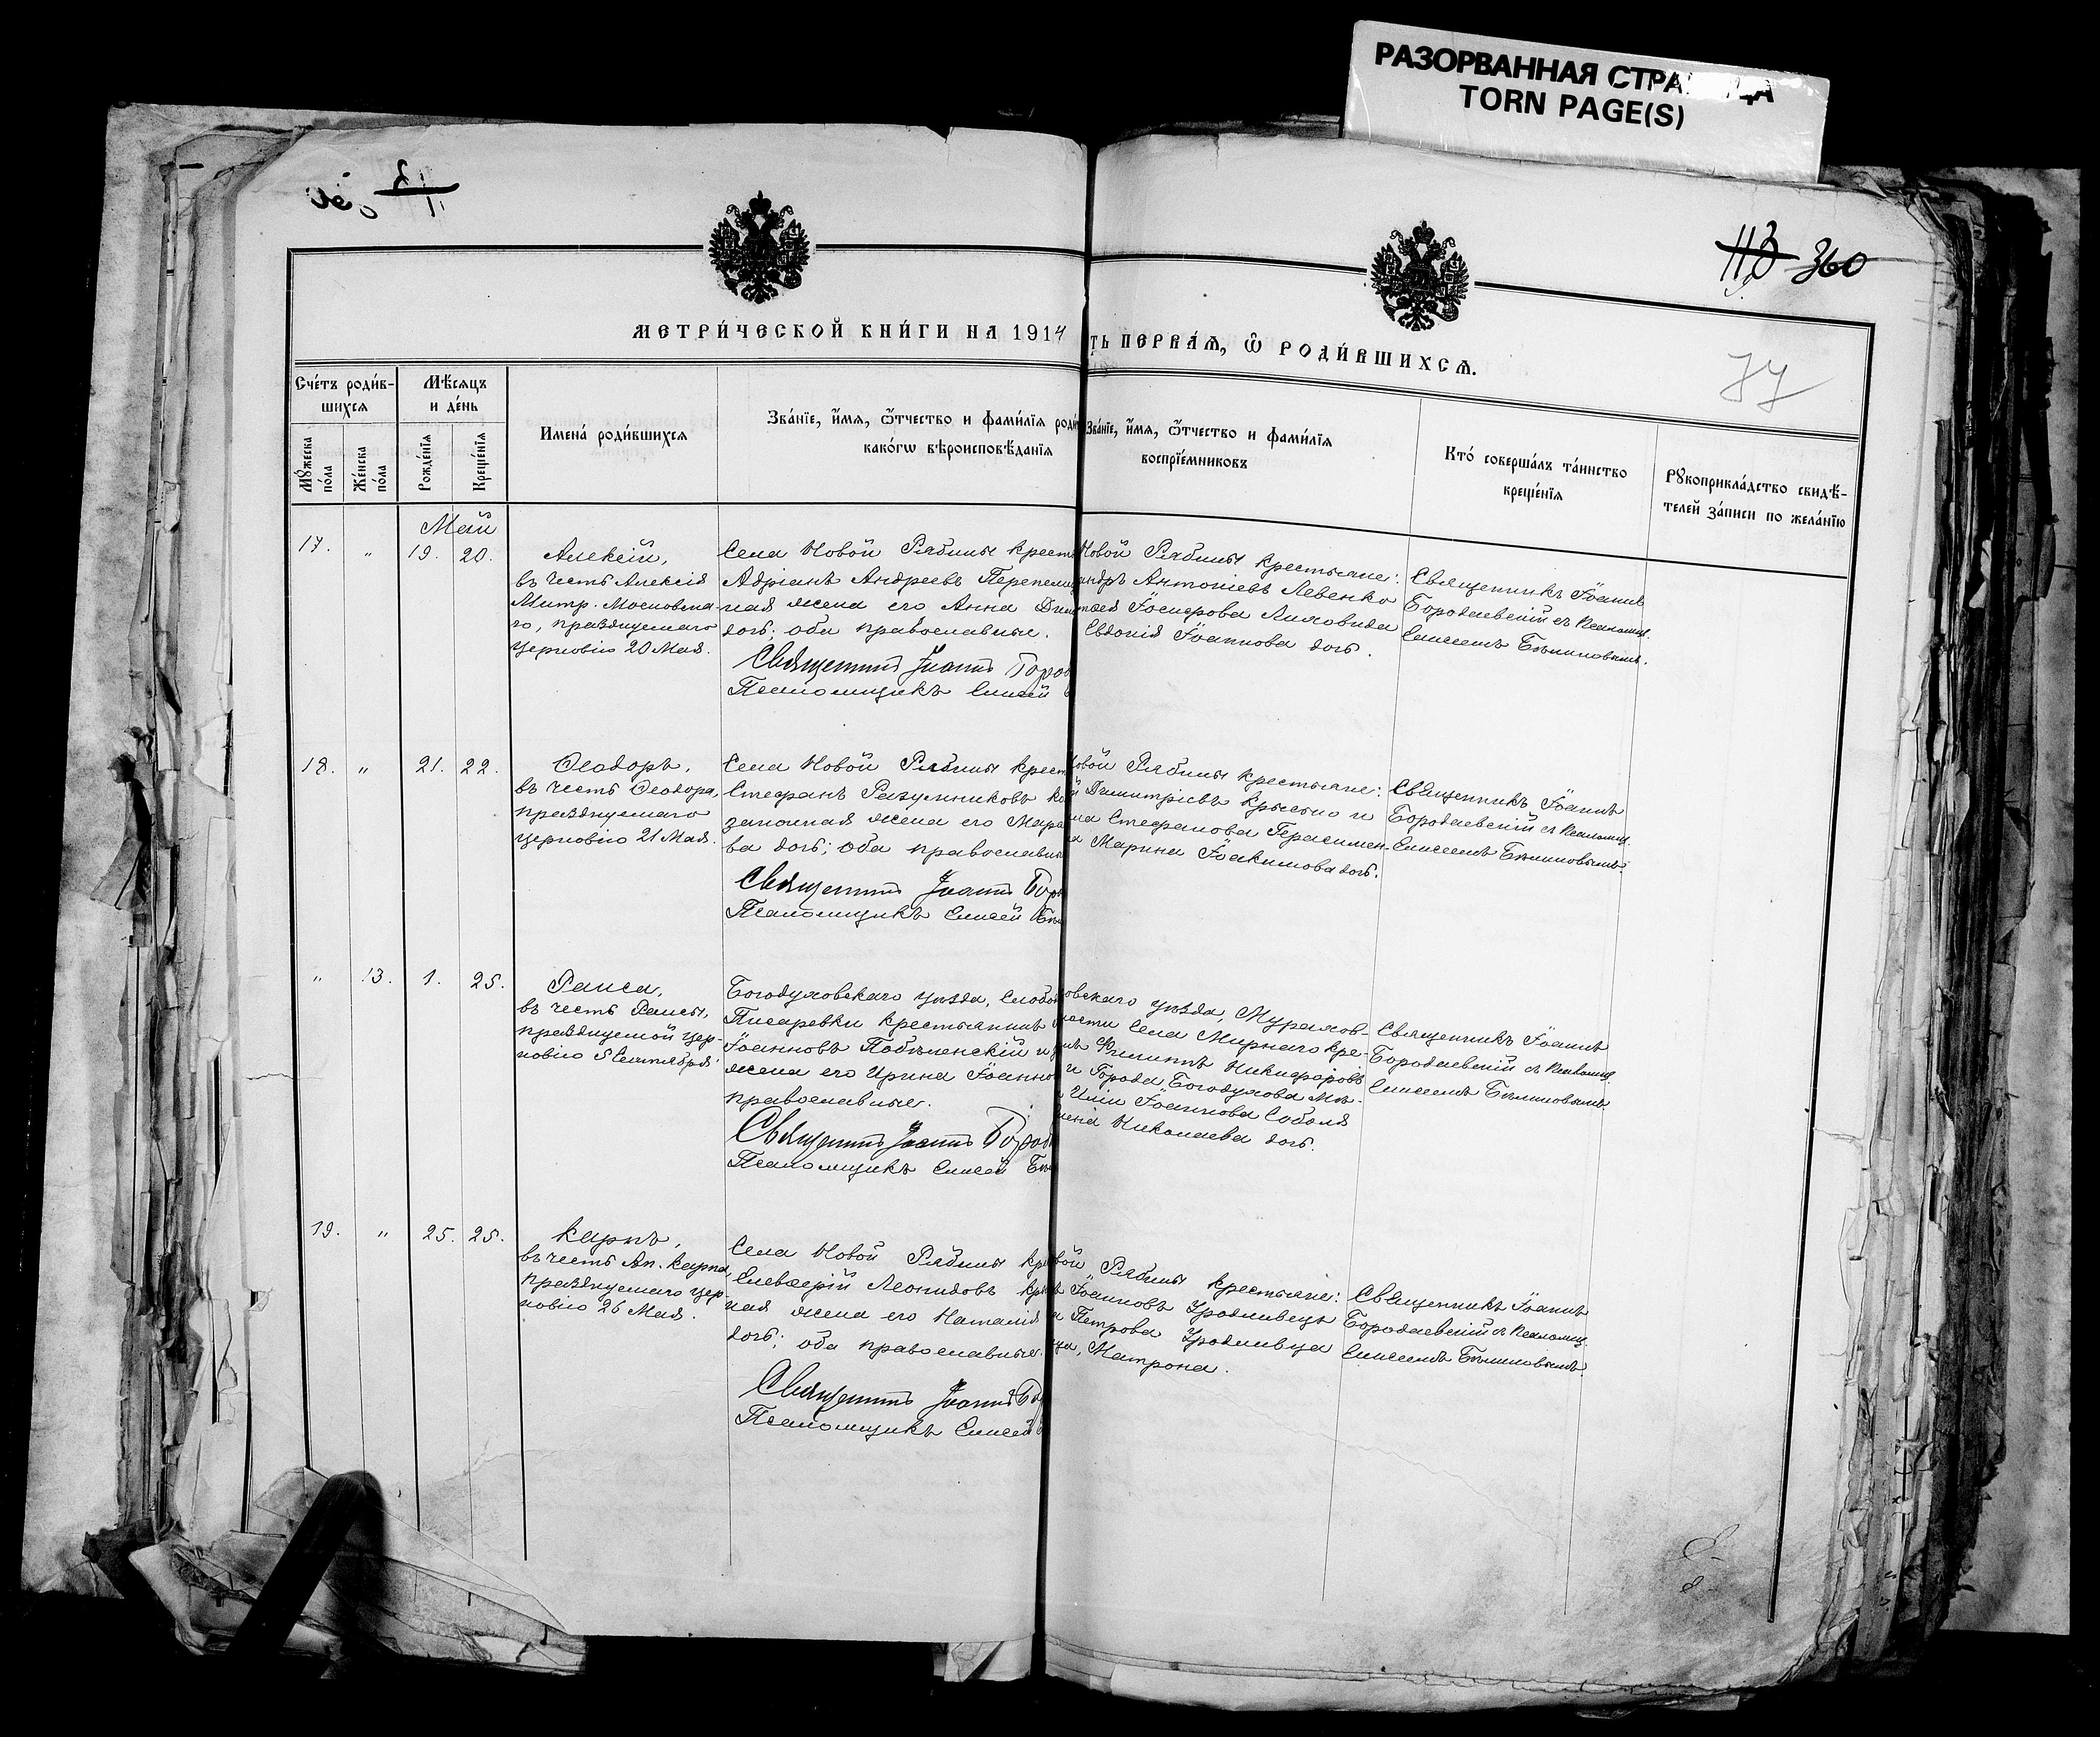 РАЗОРВАННАЯ СТРА
TORN PAGE(S)
113 360
77
МЕТРИ́ЧЕСКОЙ КНИ́ГИ НА 1914
ТЬ ПЕРВАѦ, Ѿ РОДИ́ВШИХСѦ.
Сче́тъ роди́в-
шихсѧ
Мѣ́сѧцъ
и де́нь
Мꙋ́жеска
по́ла
Же́нска
по́ла
Рожде́нїѧ
Креще́нїѧ
Имена́ роди́вшихсѧ
Зва́нїе, и҆́мѧ, ѻ҆́тчество и фами́лїѧ роди
како́гѡ вѣроисповѣ́данїѧ
Зва́нїе, и҆́мѧ, ѻ҆́тчество и фами́лїѧ
воспрїе́мниковъ
Кто́ соверша́лъ та́инство
креще́нїѧ
Рꙋкоприкла́дство свидѣ́-
телей за́писи по жела́нїю
Май
17. " 19. 20.
Алексій,
въ честь Алексія
Митр. Московска-
го, празднуемаго
церковію 20 Мая.
Села Новой Рябины крест
Адріанъ Андреевъ Перепели
ная жена его Анна Дим
дочь; оба православные.
Священникъ Іоаннъ Боро
Псаломщикъ Елисей
Новой Рябины крестьяне:
андръ Антоніевъ Левенко
Іосифова Лиховида
Евдокія Іоаннова дочь.
Священникъ Іоаннъ
Бородаевскій съ Псаломщ.
Елисеемъ Бѣликовымъ.
18. " 21. 22.
Ѳеодоръ,
въ честь Ѳеодора,
празднуемаго
церковію 21 Мая.
Села Новой Рябины крест
Стефанъ Разумниковъ
законная жена его Мар
ва дочь; оба православн
Священникъ Іоаннъ Бор
Псаломщикъ Елисей Бѣ
овой Рябины крестьяне:
й Димитріевъ Крысько и
на Стефанова Герасимен-
а Марина Іоакимова дочь.
Священникъ Іоаннъ
Бородаевскій съ Псаломщ.
Елисеемъ Бѣликовымъ.
" 13. 1. 25.
Раиса,
въ честь Раисы,
празднуемой цер-
ковію 5 Сентября
Богодуховскаго уѣзда, Слобо
Писаревки крестьянинъ
Іоанновъ Побѣленскій и
жена его Ирина Іоанно
православные.
Священникъ Іоаннъ Боро
Псаломщикъ Елисей Бѣ
овскаго уѣзда, Мурахов-
ости Села Мирнаго кре-
нъ Филиппъ Никифоровъ
и Города Богодухова Мѣ-
Іоаннова Соболя
Николаева дочь.
Священникъ Іоаннъ
Бородаевскій съ Псаломщ.
Елисеемъ Бѣликовымъ.
19. " 25. 25.
Карпъ,
въ честь Ап. Карпа,
празднуемаго цер-
ковію 26 Мая.
Села Новой Рябины кр
Елевѳерій Леонидовъ
ная жена его Наталія
дочь; оба православные.
Священникъ Іоаннъ Бо
Псаломщикъ Елисей
вой Рябины крестьяне:
Іоанновъ Уродливецъ
а Петрова Уродливца
Матрона.
Священникъ Іоаннъ
Бородаевскій съ Псаломщ.
Елисеемъ Бѣликовымъ.